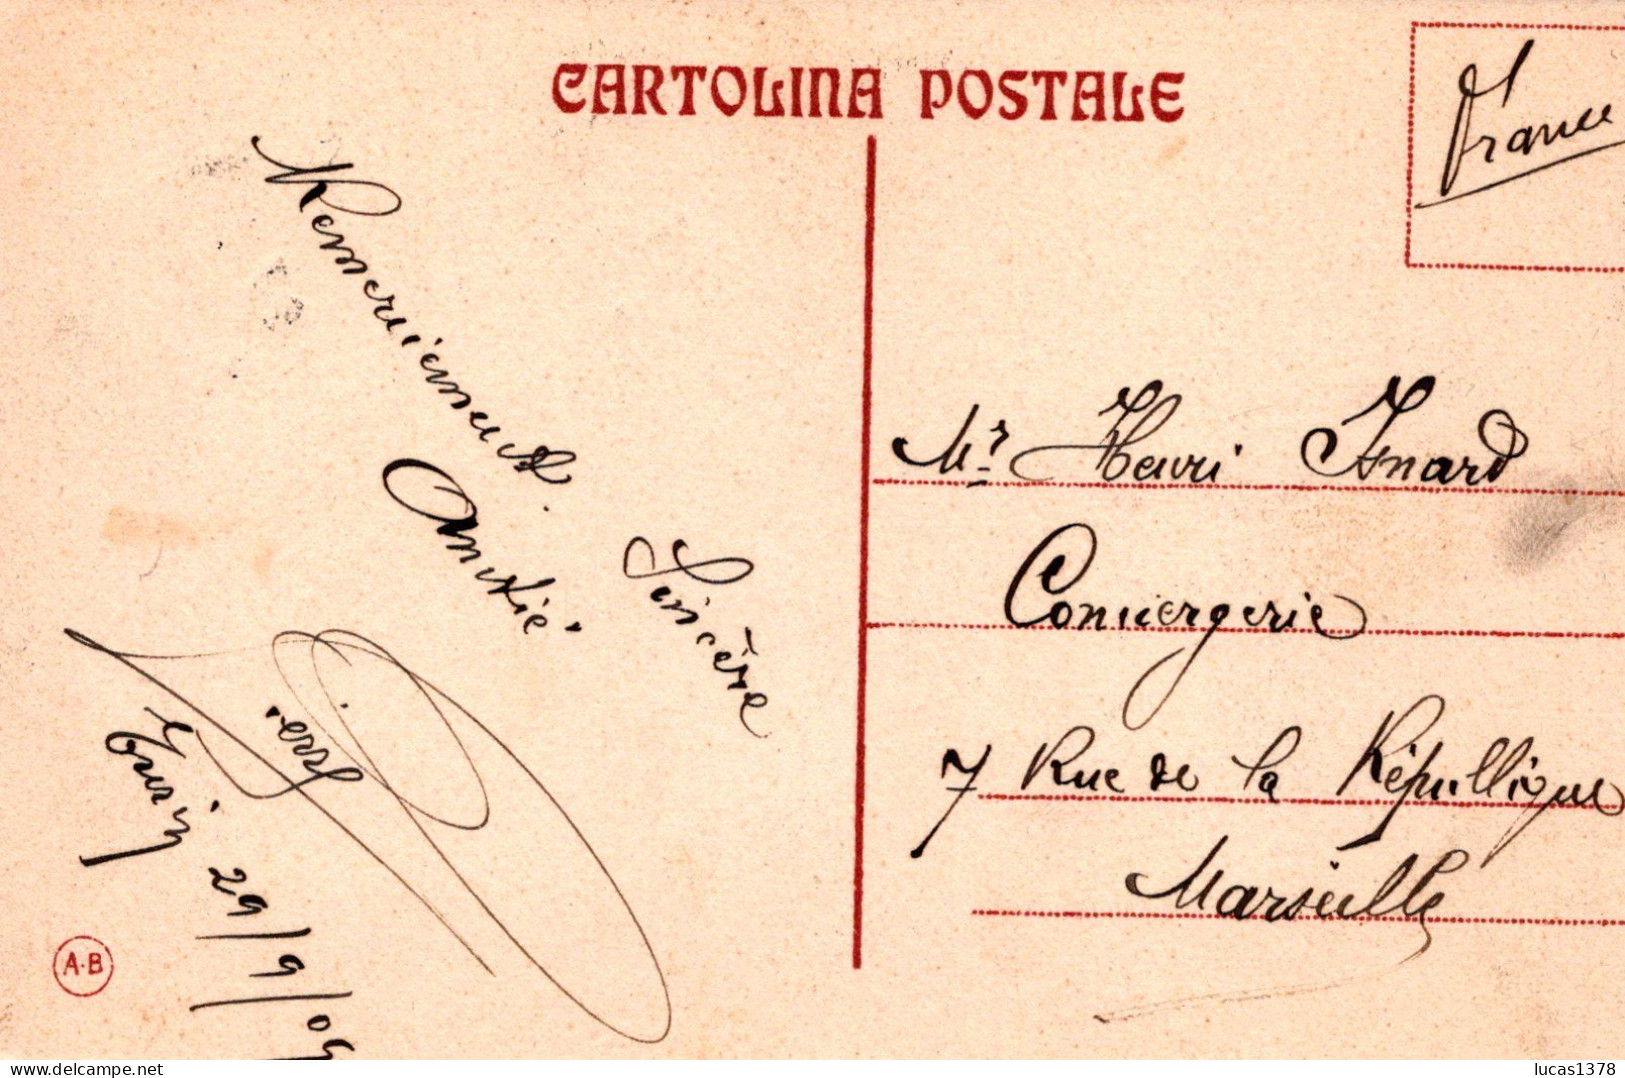 CARTOLINA POSTALE
France
Remerciement.
Sincère
Amitié.
Turin 29/9/09
A·B
Mr. Henri Isnard
Conciergerie
7 Rue de la République
Marseille
delcampe.net
lucas1378